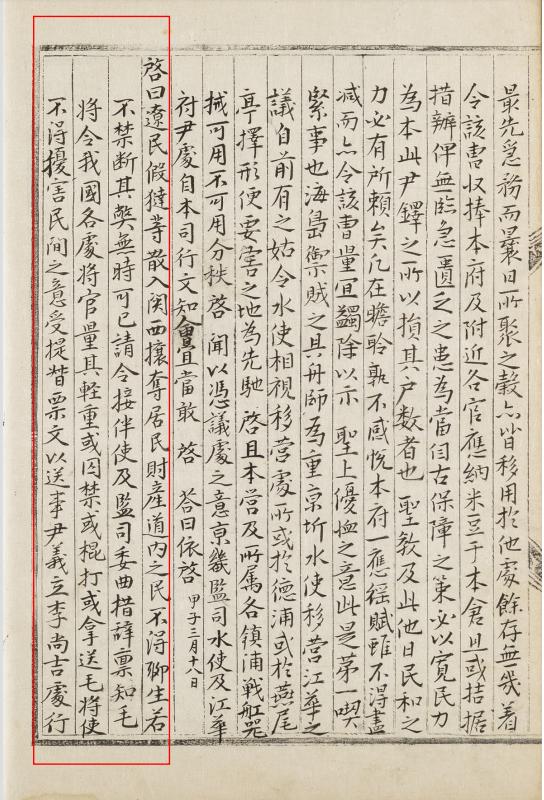 最先爲務而曩日所聚之穀亦皆移用於他處餘存無幾着
令該曹收捧本府及附近各官應納米豆于本倉且或拮据
措辦俾無臨急匱乏之患爲當自古保障之策必以寬民力
爲本此尹鐸之所以損其戶數者也 聖敎及此他日民和之
力必有所賴矣凡在瞻聆孰不感悅本府一應徭賦雖不得盡
减而亦令該曹量宜蠲除以示 聖上優恤之意此是第一喫
緊事也海島禦賊之具舟師爲重京圻水使移營江華之
議自前有之姑令水使相視移營處所或於德浦或於燕尾
亭擇形便要害之地爲先馳 啓且本營及所屬各鎭浦戰舡器
械可用不可用分秩啓 聞以憑議處之意京畿監司水使及江華
府尹處自本司行文知會宜當敢 啓 答曰依啓 甲子三月十八日
啓曰遼民假㺚等散入関西攘奪居民財産道內之民不得聊生若
不禁斷其弊無時可已請令接伴使及監司委曲措辭禀知毛
將令我國各處將官量其輕重或囚禁或棍打或拿送毛將使
不得擾害民間之意受提督票文以送事尹義立李尙吉處行